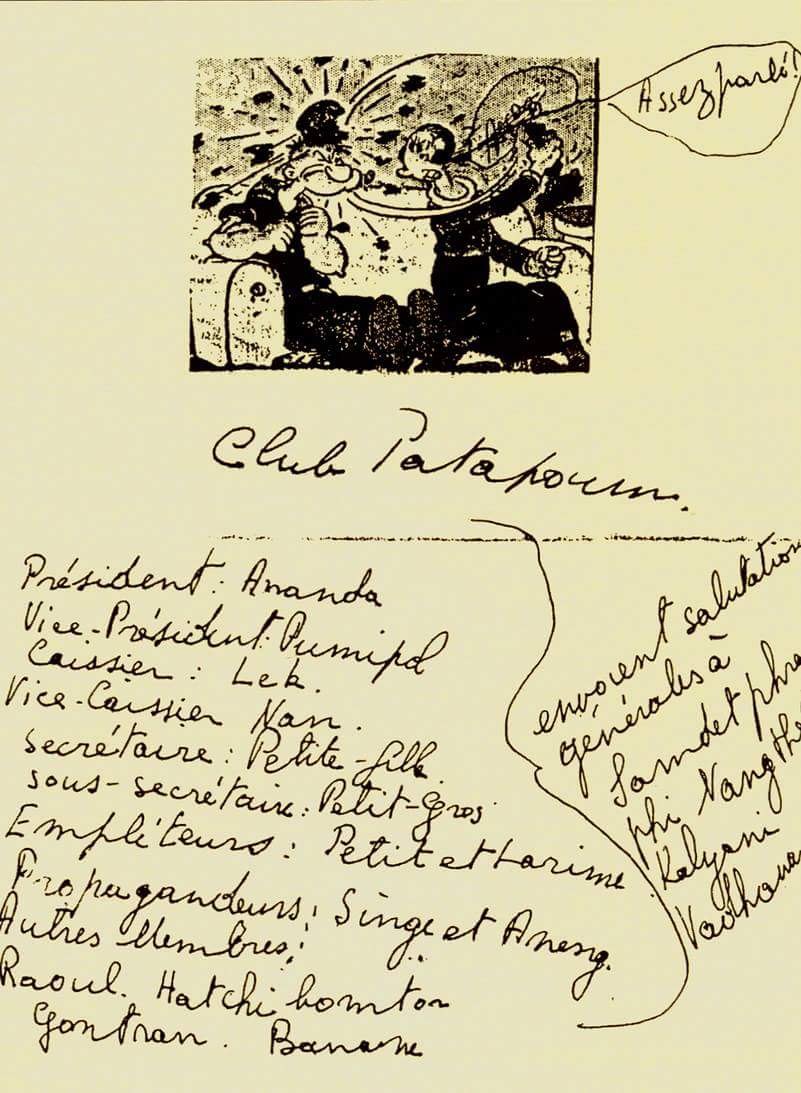 Assez parlé!
Club Patapoum.
Président: Ananda
Vice-Président: Pumipol
Caissier: Lek.
Vice-Caissier Nan.
secrétaire: Petite-fille
sous-secrétaire: Petit-Gros
Empléteurs: Petit et
Propagandeurs: Singe et
Autres Membres:
Raoul. Hatchi
Gontran. Banane
envoient salutations
générales à
Somdet phra
phi Nang The
Kalyani
Vadhana